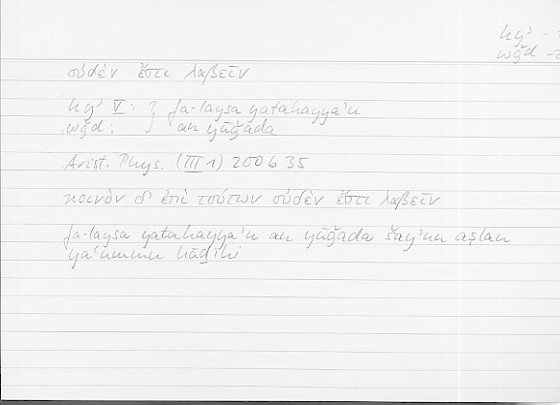 hyʾ –
wǧd –
οὐδέν ἔστι λαβεῖν
hyʾ V : } fa-laysa yatahayyaʾu
wǧd : } an yūǧada
Arist. Phys. (III 1) 200 b 35
κοινὸν δ' ἐπὶ τούτων οὐδέν ἔστι λαβεῖν
fa-laysa yatahayyaʾu an yūǧada šayʾun aṣlan
yaʿummu hāḏihi